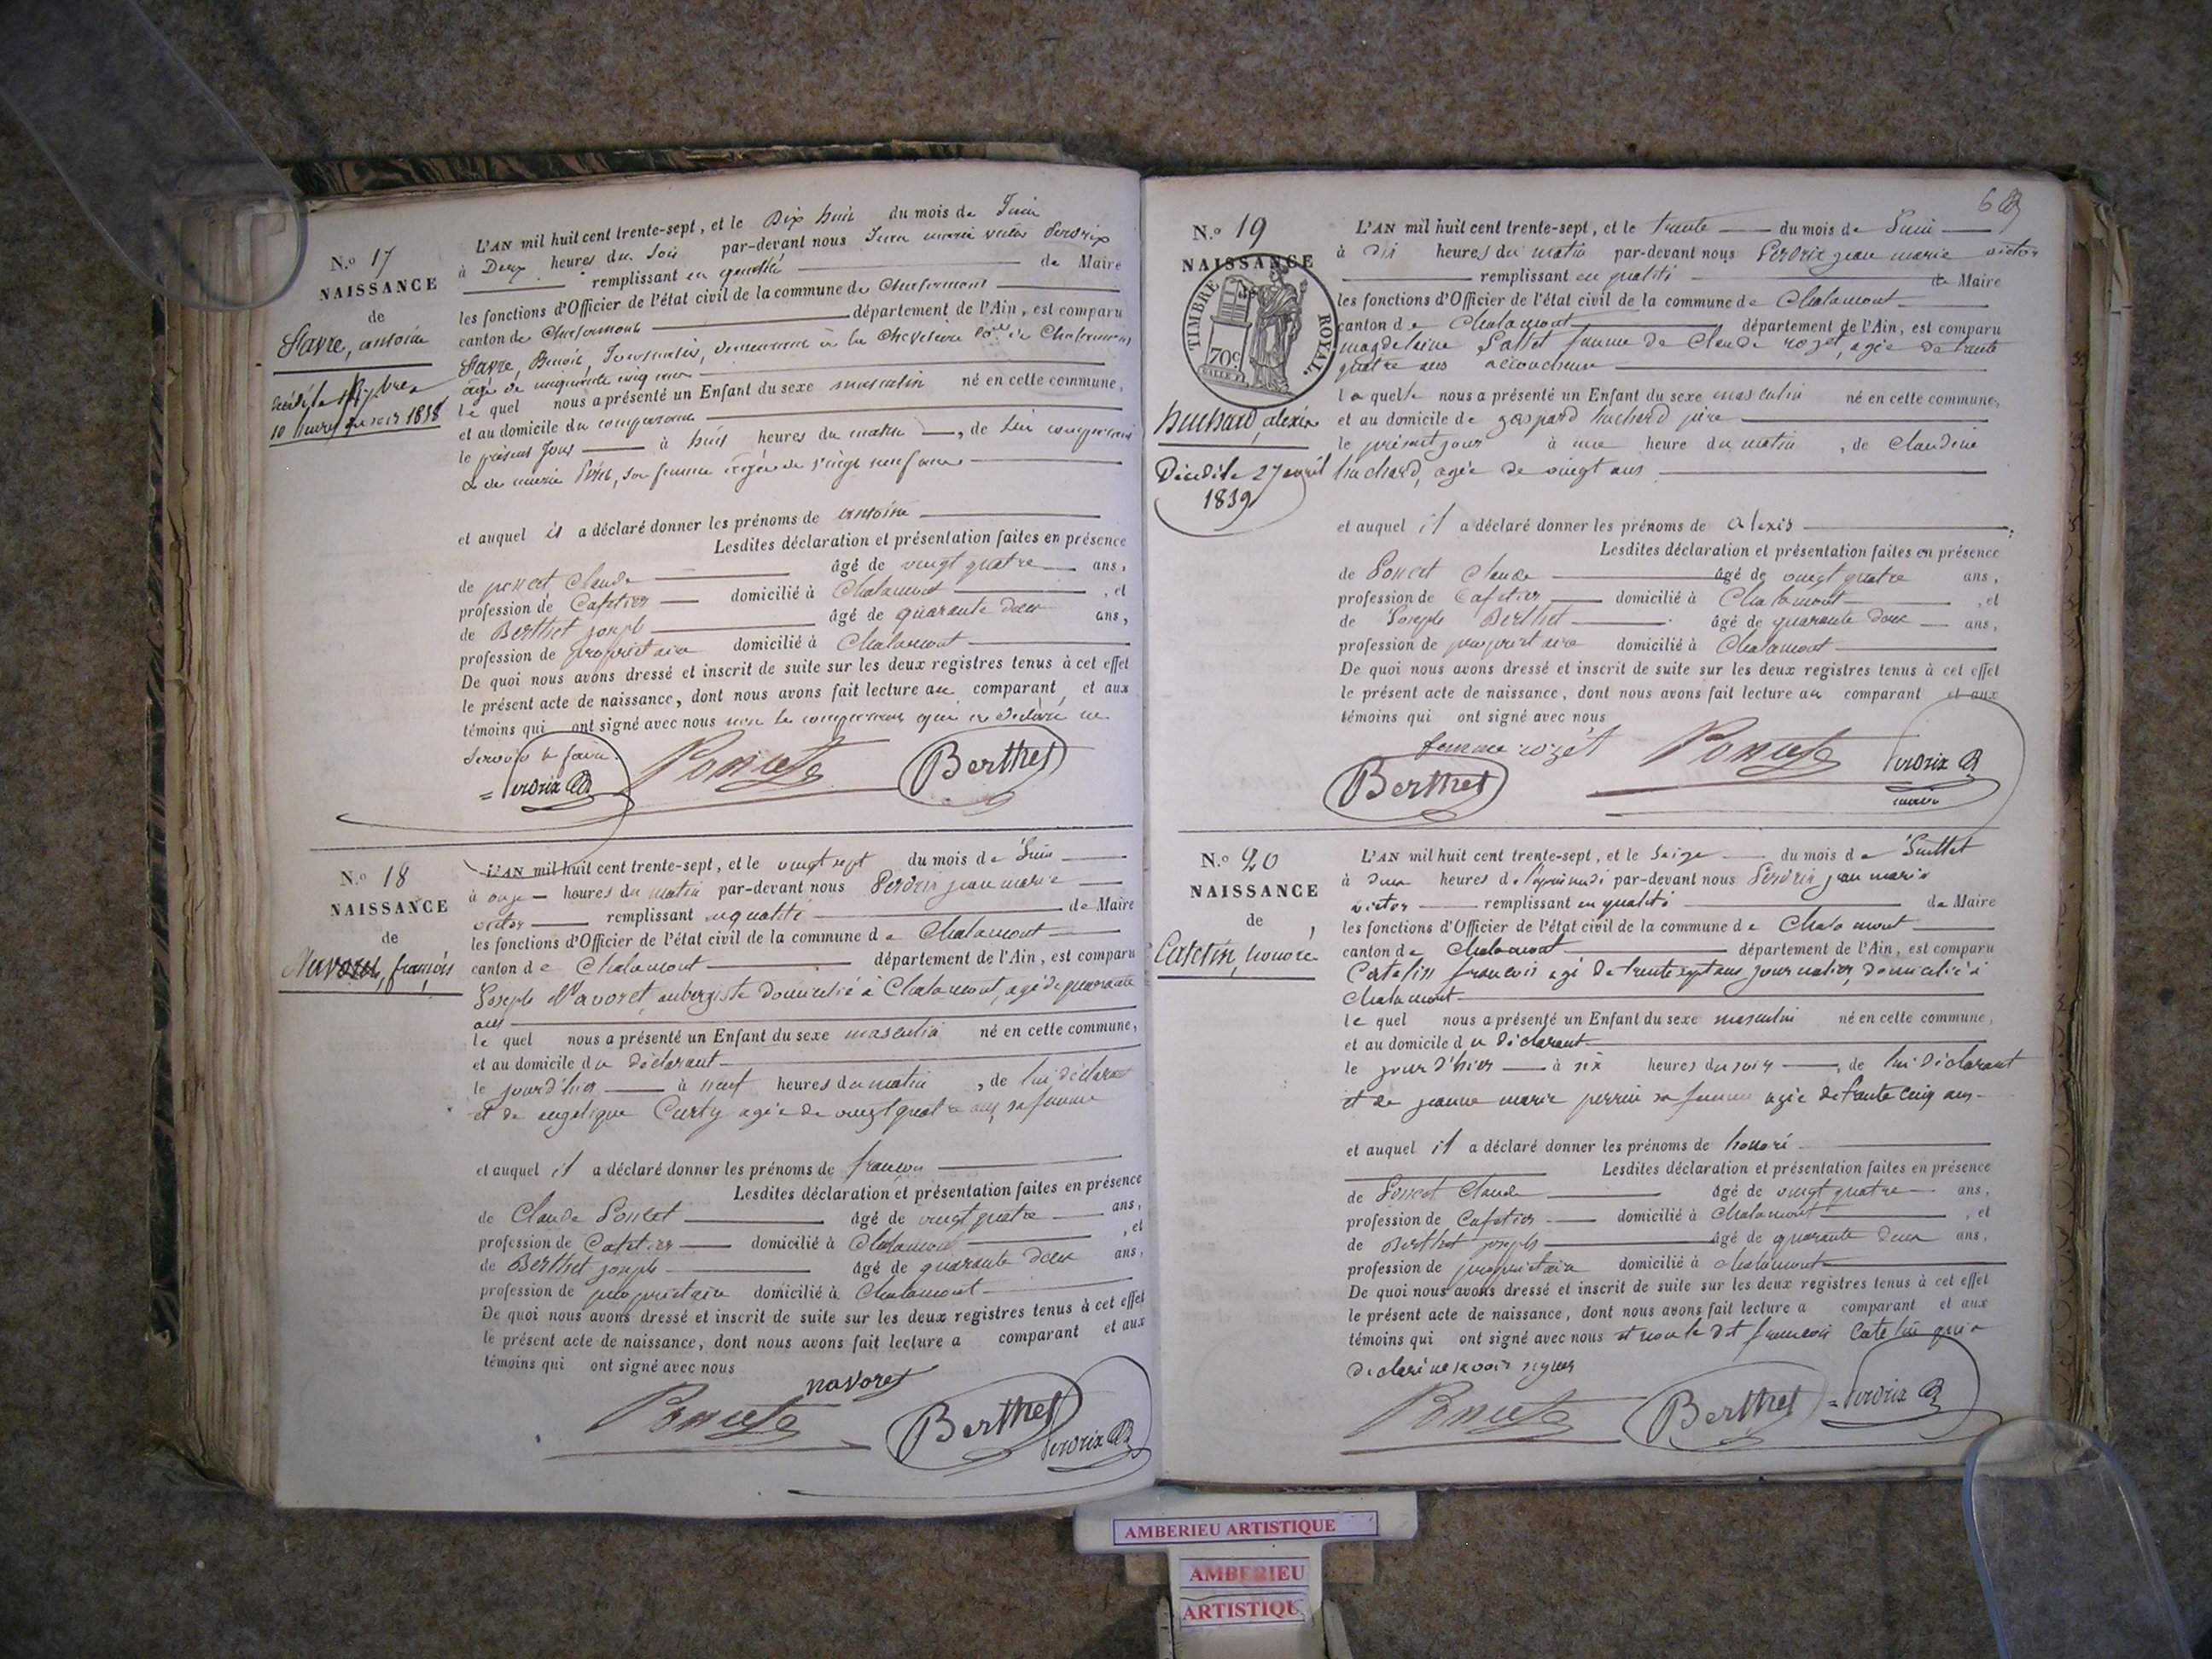 N.º 17
NAISSANCE
de
Favre, antoine
L'AN mil huit cent trente-sept, et le Dix huit du mois de Juin
à Deux heures du Soir par-devant nous Jean marie victor Perdrix
remplissant en qualité de Maire
les fonctions d'Officier de l'état civil de la commune de
canton de département de l'Ain, est comparu
Favre, Benoit, Journalier, demeurant à la
âgé de cinquante cinq ans
le quel nous a présenté un Enfant du sexe masculin né en cette commune,
et au domicile du comparant
le présent Jour à huit heures du matin, de Lui comparant
& de marie sa femme âgée de vingt neuf ans
et auquel il a déclaré donner les prénoms de antoine
Lesdites déclaration et présentation faites en présence
de poncet Claude âgé de vingt quatre ans,
profession de Cafetier domicilié à Chalamont, et
de Berthet joseph âgé de quarante deux ans,
profession de propriétaire domicilié à Chalamont
De quoi nous avons dressé et inscrit de suite sur les deux registres tenus à cet effet
le présent acte de naissance, dont nous avons fait lecture au comparant et aux
témoins qui ont signé avec nous non le comparant qui a déclaré ne
Savoir le faire.
Perdrix Poncet Berthet
N.º 18
NAISSANCE
de
Navoret, françois
L'AN mil huit cent trente-sept, et le vingt sept du mois de Juin
à onze heures du matin par-devant nous Perdrix jean marie
victor remplissant en qualité de Maire
les fonctions d'Officier de l'état civil de la commune de Chalamont
canton de Chalamont département de l'Ain, est comparu
Joseph Navoret aubergiste domicilié à Chalamont, agé de quarante
ans
le quel nous a présenté un Enfant du sexe masculin né en cette commune,
et au domicile du déclarant
le jour d'hier à neuf heures du matin, de lui déclarant
et de angelique Curty agée de vingt quatre ans sa femme
et auquel il a déclaré donner les prénoms de françois
Lesdites déclaration et présentation faites en présence
de Claude Poncet âgé de vingt quatre ans,
profession de Cafetier domicilié à Chalamont, et
de Berthet joseph âgé de quarante deux ans,
profession de propriétaire domicilié à Chalamont
De quoi nous avons dressé et inscrit de suite sur les deux registres tenus à cet effet
le présent acte de naissance, dont nous avons fait lecture a comparant et aux
témoins qui ont signé avec nous
navoret
Poncet Berthet Perdrix
N.º 19
NAISSANCE
de
TIMBRE ROYAL
70 c.
huchard, alexis
Décédé le 27 avril
1839
L'AN mil huit cent trente-sept, et le trente du mois de Juin
à dix heures du matin par-devant nous Perdrix jean marie victor
remplissant en qualité de Maire
les fonctions d'Officier de l'état civil de la commune de Chalamont
canton de Chalamont département de l'Ain, est comparu
magdeleine femme de Claude rozet, agée de trente
quatre ans accoucheuse
la quelle nous a présenté un Enfant du sexe masculin né en cette commune,
et au domicile de gaspard huchard père
le présent jour à une heure du matin, de Claudine
huchard, agée de vingt ans
et auquel il a déclaré donner les prénoms de alexis
Lesdites déclaration et présentation faites en présence
de Poncet Claude âgé de vingt quatre ans,
profession de Cafetier domicilié à Chalamont, et
de Joseph Berthet âgé de quarante deux ans,
profession de propriétaire domicilié à Chalamont
De quoi nous avons dressé et inscrit de suite sur les deux registres tenus à cet effet
le présent acte de naissance, dont nous avons fait lecture au comparant et aux
témoins qui ont signé avec nous
femme rozet Poncet Perdrix
Berthet maire
N.º 20
NAISSANCE
de
Catelin, honoré
L'AN mil huit cent trente-sept, et le Seize du mois de Juillet
à deux heures de l'après midi par-devant nous Perdrix jean marie
victor remplissant en qualité de Maire
les fonctions d'Officier de l'état civil de la commune de Chalamont
canton de Chalamont département de l'Ain, est comparu
Catelin françois agé de trente sept ans, journalier, domicilié à
Chalamont
le quel nous a présenté un Enfant du sexe masculin né en cette commune,
et au domicile du déclarant
le jour d'hier à six heures du soir, de lui déclarant
et de jeanne marie perrin sa femme agée de trente cinq ans
et auquel il a déclaré donner les prénoms de honoré
Lesdites déclaration et présentation faites en présence
de Poncet Claude âgé de vingt quatre ans,
profession de Cafetier domicilié à Chalamont, et
de Berthet joseph âgé de quarante deux ans,
profession de propriétaire domicilié à chalamont
De quoi nous avons dressé et inscrit de suite sur les deux registres tenus à cet effet
le présent acte de naissance, dont nous avons fait lecture a comparant et aux
témoins qui ont signé avec nous et non le dit françois Catelin qui a
déclaré ne savoir signer
Poncet Berthet Perdrix
AMBERIEU ARTISTIQUE
AMBERIEU
ARTISTIQU